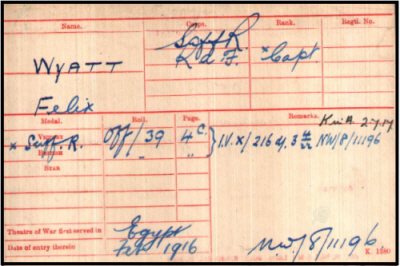 Name. Corps. Rank. Regtl. No.
WYATT Suff R. * Capt
R d F.
Felix
Medal. Roll. Page. Remarks.
VICTORY
* Suff. R. Off/39 4 C. } I.V. X/216 NW/8/11196
BRITISH " "
STAR
Theatre of War first served in Egypt
Date of entry therein 1916 NW/8/11196
K. 1380